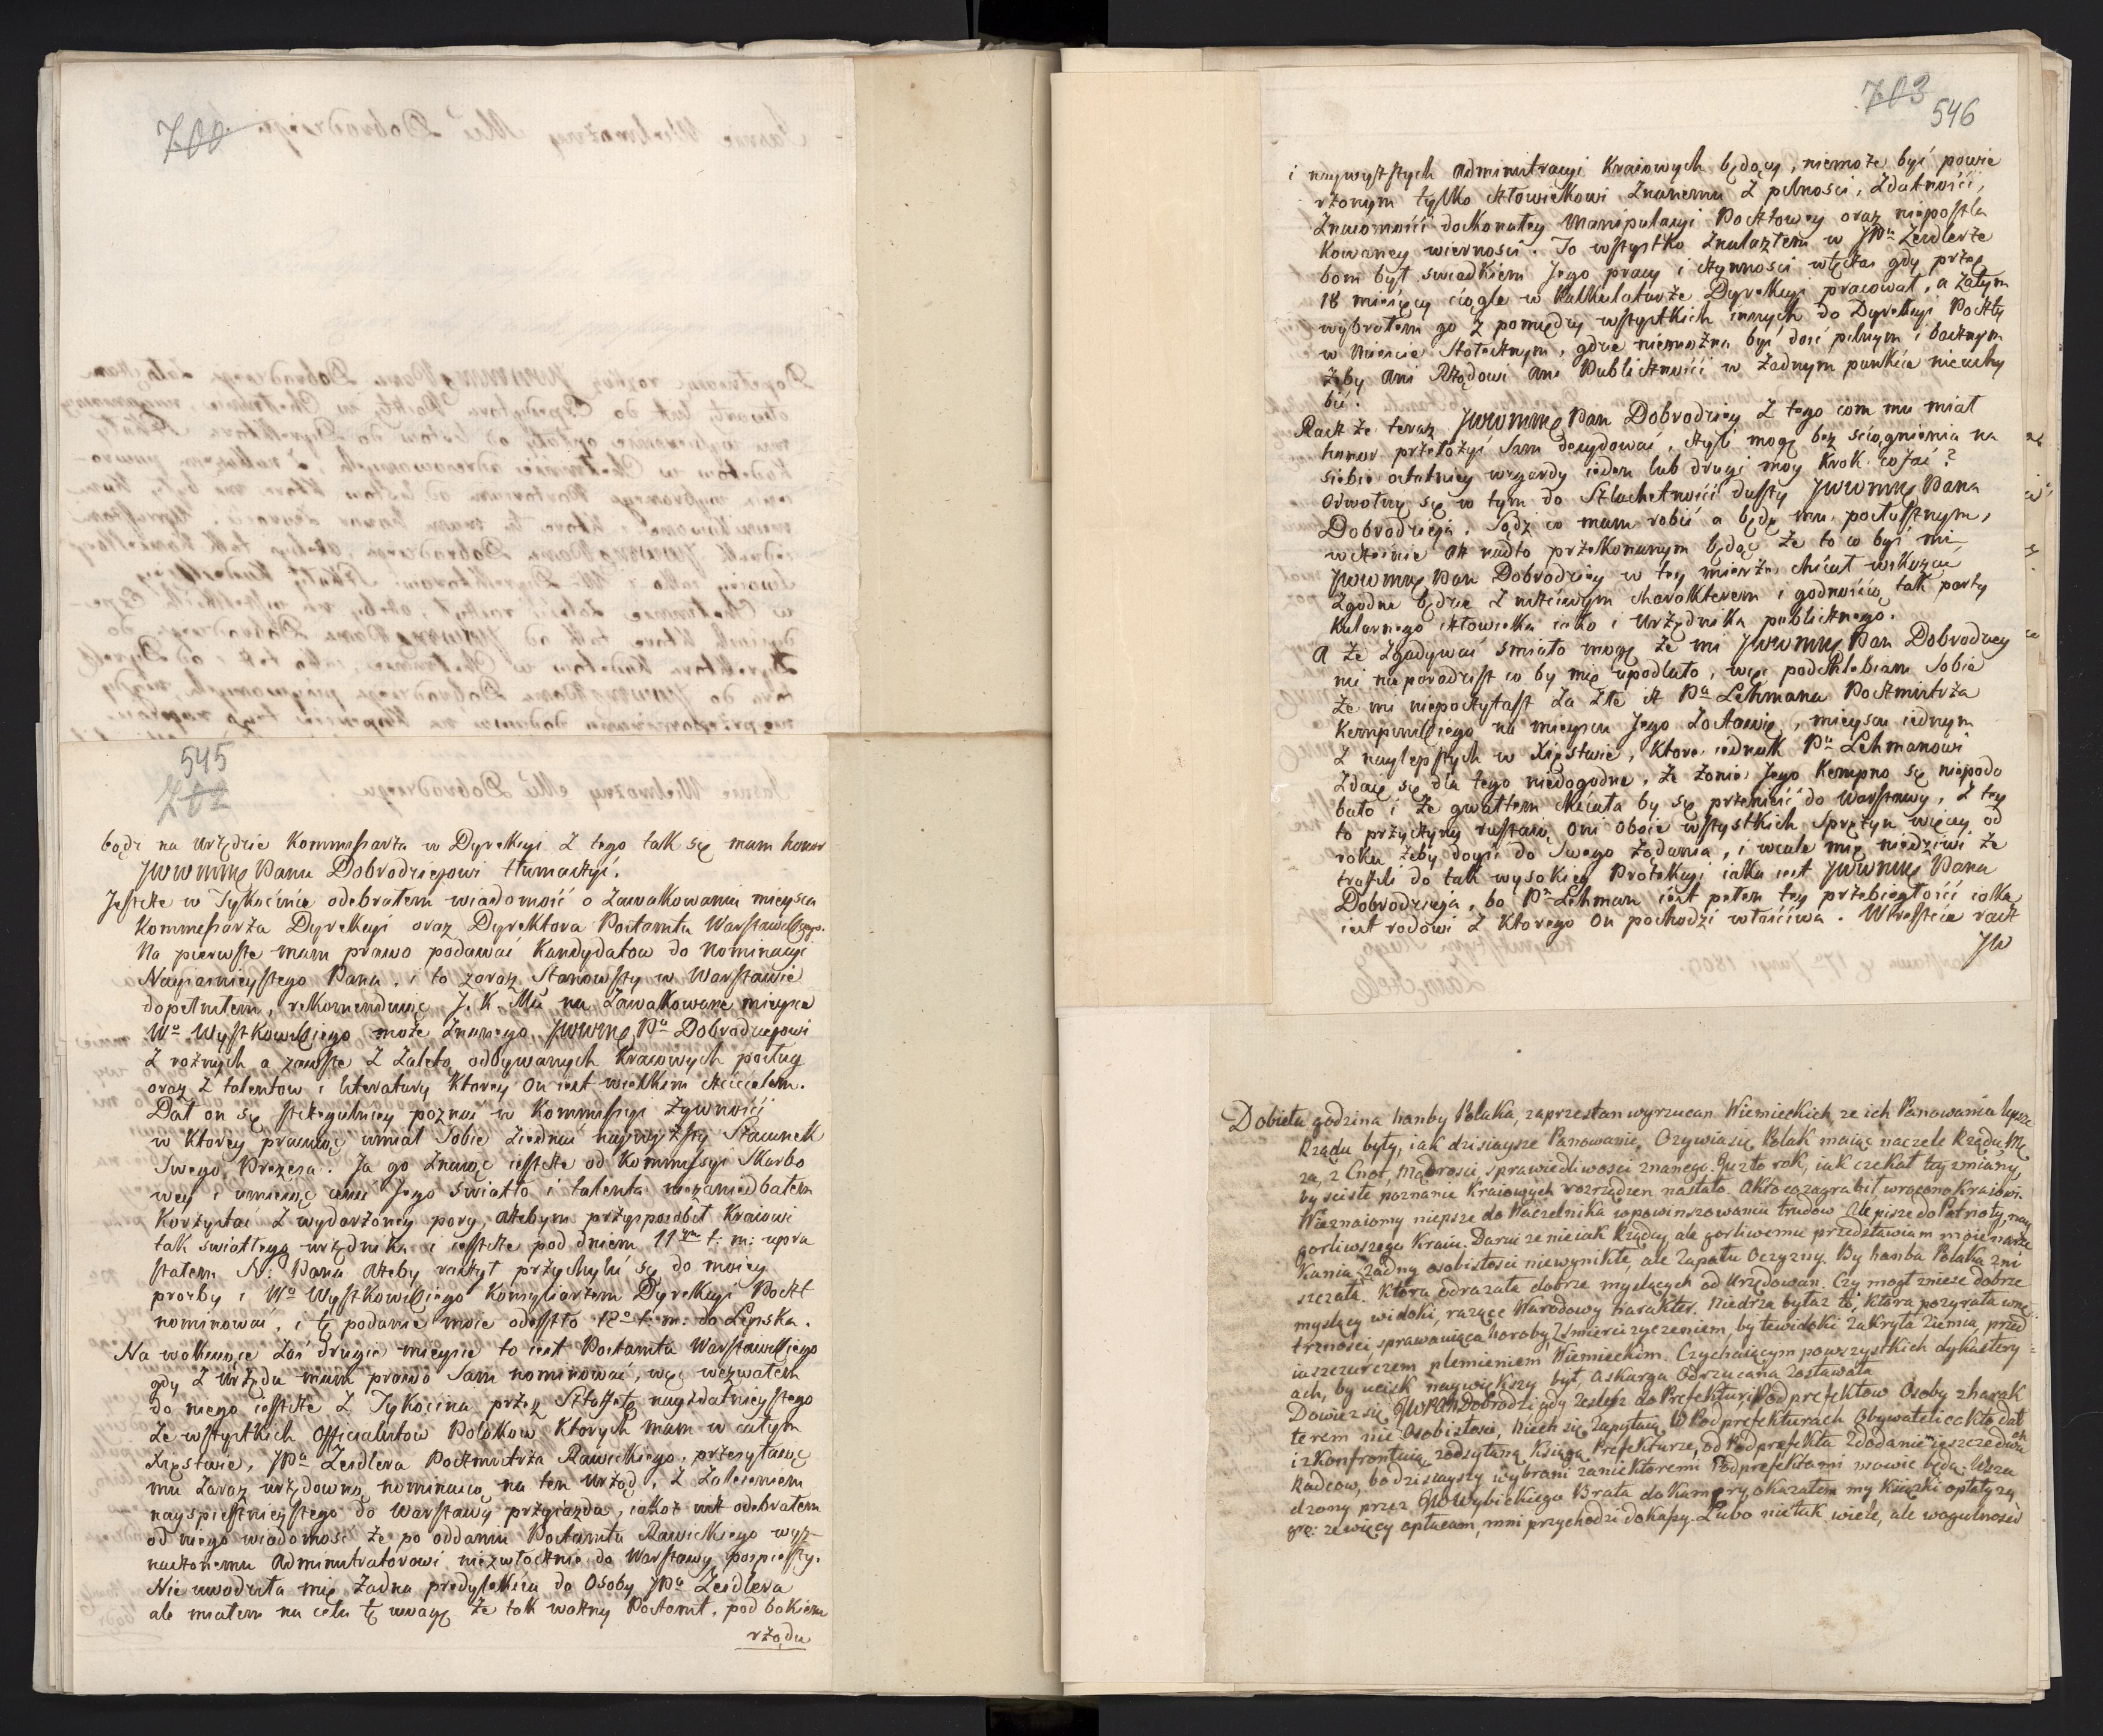 700
545
702
bądź na Urzędzie Kommissarza w Dyrekcyi z tego tak się mam honor
JWWMMę Panu Dobrodziejowi tłumaczyć.
Jeszcze w Tykocinie odebrałem wiadomość o zawakowaniu mieysca
Kommissarza Dyrekcyi oraz Dyrektora Postamtu Warszawskiego.
Na pierwsze mam prawo podawać Kandydatow do Nominacyi
Nayiaśnieyszego Pana, i to zaraz Stanowszy w Warszawie
dopełniłem, rekomenduiąc J. K. Mci na zawakowane mieysce
Wo Wyszkowskiego może znanego JWWMę Pu Dobrodziejowi
z rożnych a zawsze z zaletą odbywanych kraiowych posług
oraz z talentow i literatury ktorey on iest wielkim czcicielem.
Dał on się szczegulniey poznać w Kommissyi Żywności
w ktorey pracuiąc umiał sobie ziednać naywyższy szacunek
Swego Prezesa. Ja go znaiąc ieszcze od Kommissyi Skarbo
wey i umieiąc cenić Jego światło i talenta niezaniedbałem
korzystać z wydarzoney pory, ażebym przysposobił Kraiowi
tak światłego urzędnika i ieszcze pod dniem 11tym t: m: upra
szałem N: Pana ażeby raczył przychylić się do moiey
prozby i Wo Wyszkowskiego Konsyliarzem Dyrekcyi Poczt
nominować, i tę podanie moie odeszło 12o t: m: do Lipska.
Na wakuiące zaś drugie mieysce to iest Postamtu Warszawskiego
gdy z Urzędu mam prawo Sam nominować, więc wezwałem
do niego ieszcze z Tykocina przez Sztafetę nayzdatnieyszego
ze wszystkich Officialistow Polakow ktorych mam w całym
Xięstwie, JPa Zeidlera Poczmistrza Rawickiego, przesyłaiąc
mu zaraz urzędowną nominacią na ten Urząd, z zaleceniem
nayspiesznieyszego do Warszawy przyiazdu, iakoż iuż odebrałem
od niego wiadomość że po oddaniu Postamtu Rawickiego wyz-
naczonemu Administratorowi niezwłocznie do Warszawy pospieszy.
Nie uwodziła mię żadna predylekcia do Osoby JPa Zeidlera
ale miałem na celu tę uwagę że tak ważny Postamt, pod bokiem
rządu
703
546
i naywyższych Administracyi Kraiowych będący, niemoże być powie
rzonym tylko człowiekowi znanemu z pilności, zdatności,
znaiomości dokonałey Manipulacyi Pocztowey oraz nieposzla
kowaney wierności. To wszystko znalazłem w JPu Zeidlerze
bom był świadkiem Jego pracy i czynności wtęczas gdy przez
18 miesięcy ciągle w Kalkulaturze Dyrekcyi pracował, a zatym
wybrałem go z pomiędzy wszystkich innych do Dyrekcyi Poczty
w Mieście Stołecznym, gdzie niemożna być dość pilnym i bacznym
żeby Ani Rządowi Ani Publiczności w żadnym punkcie nieuchy
bić.
Racz że teraz JWWMMę Pan Dobrodziey z tego com mu miał
honor przełożyć Sam decydować, czyli mogę bez sciągnienia na
siebie ostatniey wzgardy ieden lub drugi moy krok cofać?
Odwołuię się w tym do Szlachetności duszy JWWMMę Pana
Dobrodzieja. Sądź co mam robić a będę mu posłusznym,
wcześnie aż nadto przekonanym będąc że to co byś mi
JWWMMę Pan Dobrodziey w tey mierze chciał wskazać
zgodne będzie z uczciwym charakterem i godnością tak party
kularnego człowieka iako i Urzędnika publicznego.
A że zgadywać śmiało mogę że mi JWWMMę Pan Dobrodziey
nic nieporadzisz co by mię upodlało, więc podchlebiam sobie
że mi niepoczytasz za złe iż Pa Lehmana Poczmistrza
Kempińskiego na mieyscu Jego zostawię, mieyscu iednym
z naylepszych w Xięstwie, ktore iednak Pu Lehmanowi
zdaie się dla tego niedogodne, że żonie Jego Kempno się niepodo
bało i że gwałtem chciała by się przenieść do Warszawy, z tey
to przyczyny ruszaią oni oboie wszystkich Sprężyn więcey od
roku żeby doyść do Swego żądania, i wcale mię niedziwi że
trafili do tak wysokiey Protekcyi iaka iest JWWMMę Pana
Dobrodzieja, bo Pn Lehman iest pełen tey przebiegłości iaka
iest rodowi z ktorego on pochodzi właściwa. Wreszcie racz
JW
Dobiła godzina hanby Polaka, zaprzestan wyrzucan Niemieckich, ze ich Panowania lepsze
Rządu były, iak dzisieysze Panowanie. Ozywia się Polak maiąc na czele Rządu Mę
za, z Cnot, Mądrosci, sprawiedliwosci znanego. Juz to rok, iak czekał tey zmiany,
by sciste poznanie Kraiowych rozrządzen nastało. A kto co zagrabił wrocono Kraiowi.
Nieznaiomy niepisze do Naczelnika w powinszowaniu trudow ale pisze do Patrioty, nay
gorliwszego Kraiu. Daruie ze nie iak Rządcy, ale gorliwemu przedstawiam moie narze
kania z żadney osobistosci niewynikłe, ale zapału Oczyzny. By hanba Polaka zni
szczała. Ktora odrazała dobrze myslących od Urzędowan. Czy mogł zniesc dobrze
myslący widoki, razące Narodowy harakter. Niedzą byłaz to, ktora pozyrała wnę
trznosci sprawauiąca horoby, z smierci zyczeniem, by te widoki zakryła ziemia, przed
iaszczurczem plemieniem Niemieckim. Czychaiącym po wszystkich dykastery
ach, by ucisk naywiększy był, a skarga odrzucana zostawała
Dowiesz się JWPan Dobrodzi gdy zeslesz do Prefektur, i Podprefektow Osoby z harak
terem nie Osobistosci, niech się zapytaią W Podprefekturach Obywateli co kto dał
i zkonfrontuią z odsyłaną Księgą Prefekturze, od Podprefekta z dodaniem ieszcze dwoch
Radcow, bo dzisieyszy wybrani za niektoremi Podprefektami mowic będą. Uszka
dzony przez JW Wybickiego Brata do Kamery okazałem my Kiązki opłaty za
gro: ze więcy opłacam, mni przychodzi do kassy. Lubo nie tak wiele, ale w ogulnosci